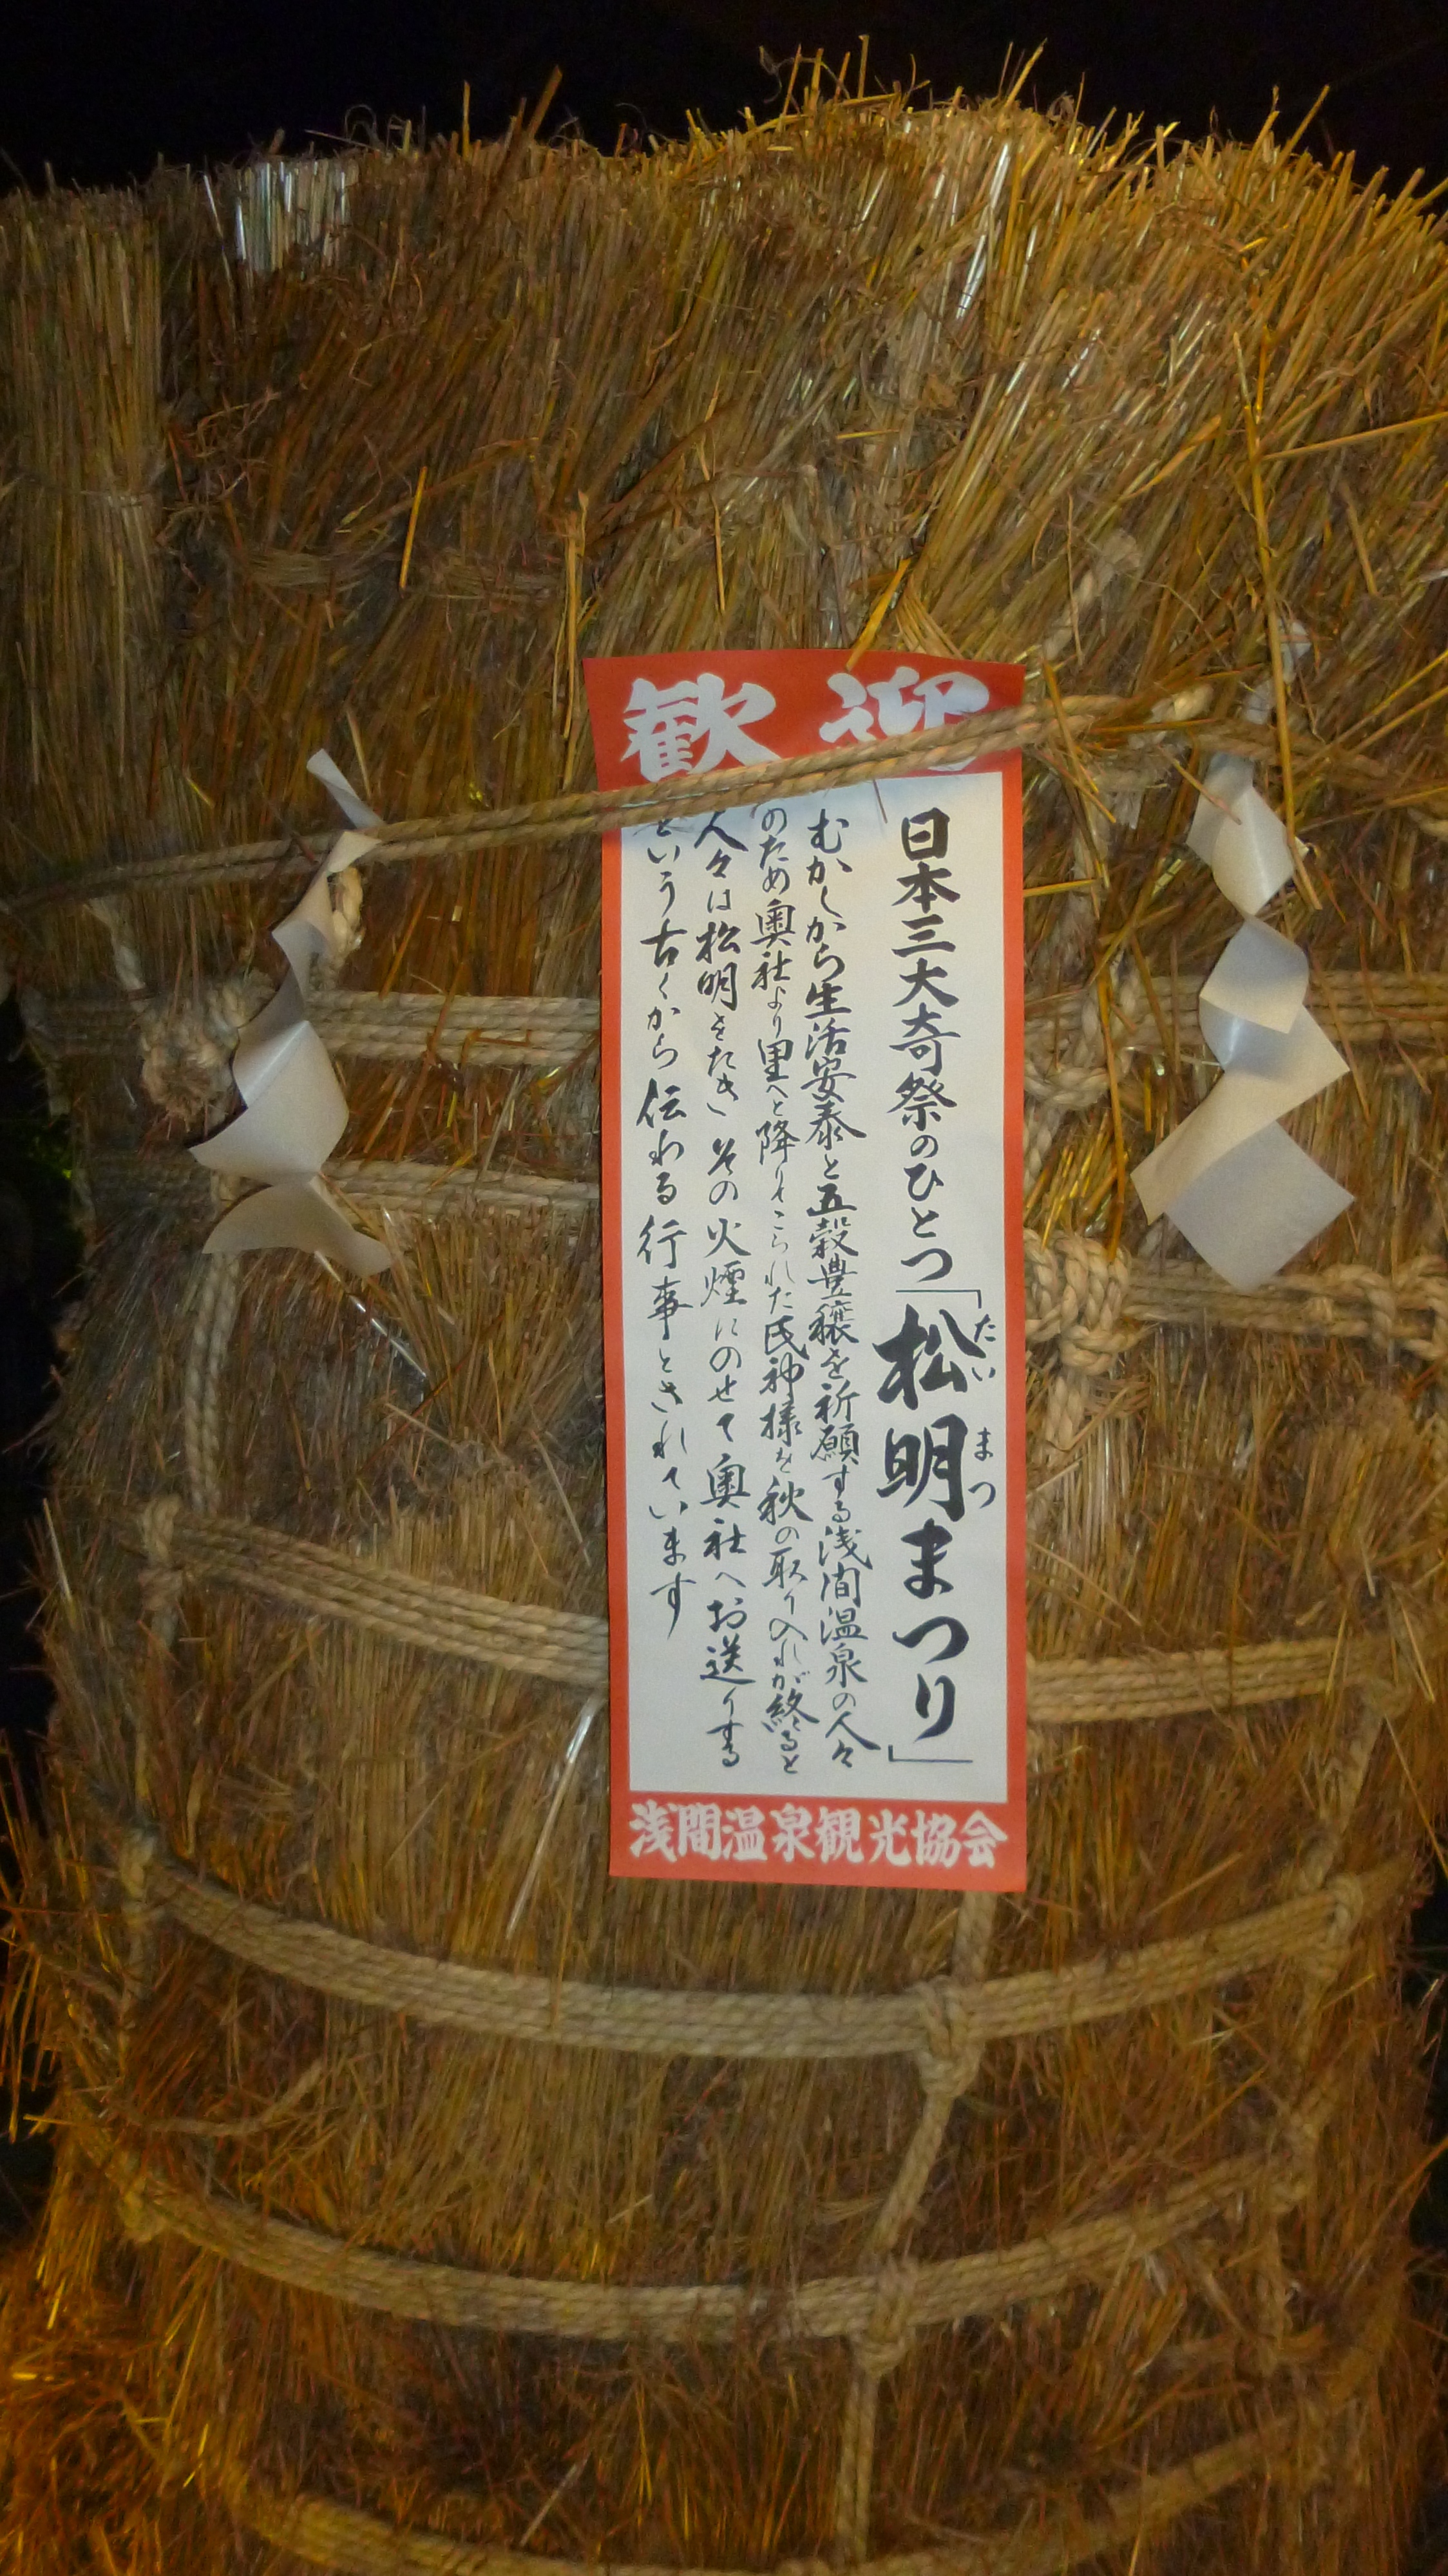 歓迎
日本三大奇祭のひとつ「松明まつり」
たいまつ
むかしから生活安泰と五穀豊穣を祈願する浅間温泉の人々
のため奥社より里へと降りてこられた氏神様を秋の取り入れが終ると
人々は松明をたきその火煙にのせて奥社へお送りする
という古くから伝わる行事とされています
浅間温泉観光協会